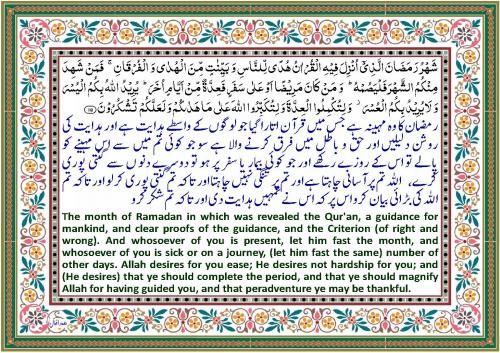 شَهْرُ رَمَضَانَ الَّذِيْٓ اُنْزِلَ فِيْهِ الْقُرْاٰنُ هُدًى لِّلنَّاسِ وَ بَيِّنٰتٍ مِّنَ الْهُدٰى وَ الْفُرْقَانِ ۚ فَمَنْ شَهِدَ
مِنْكُمُ الشَّهْرَ فَلْيَصُمْهُ ؕ وَ مَنْ كَانَ مَرِيْضًا اَوْ عَلٰى سَفَرٍ فَعِدَّةٌ مِّنْ اَيَّامٍ اُخَرَ ؕ يُرِيْدُ اللّٰهُ بِكُمُ الْيُسْرَ
وَ لَا يُرِيْدُ بِكُمُ الْعُسْرَ ؗ وَ لِتُكْمِلُوا الْعِدَّةَ وَ لِتُكَبِّرُوا اللّٰهَ عَلٰى مَا هَدٰىكُمْ وَ لَعَلَّكُمْ تَشْكُرُوْنَ
رمضان کا وہ مہینہ ہے جس میں قرآن اتارا گیا جو لوگوں کے واسطے ہدایت ہے اور ہدایت کی
روشن دلیلیں اور حق و باطل میں فرق کرنے والا ہے سو جو کوئی تم میں سے اس مہینے کو
پالے تو اس کے روزے رکھے اور جو کوئی بیمار یا سفر پر ہو تو دوسرے دنوں سے گنتی پوری
کرے، اللہ تم پر آسانی چاہتا ہے اور تم پر تنگی نہیں چاہتا اور تاکہ تم گنتی پوری کرلو اور تاکہ تم
اللہ کی بڑائی بیان کرو اس پر کہ اس نے تمہیں ہدایت دی اور تاکہ تم شکر کرو
The month of Ramadan in which was revealed the Qur'an, a guidance for
mankind, and clear proofs of the guidance, and the Criterion (of right and
wrong). And whosoever of you is present, let him fast the month, and
whosoever of you is sick or on a journey, (let him fast the same) number of
other days. Allah desires for you ease; He desires not hardship for you; and
(He desires) that ye should complete the period, and that ye should magnify
Allah for having guided you, and that peradventure ye may be thankful.